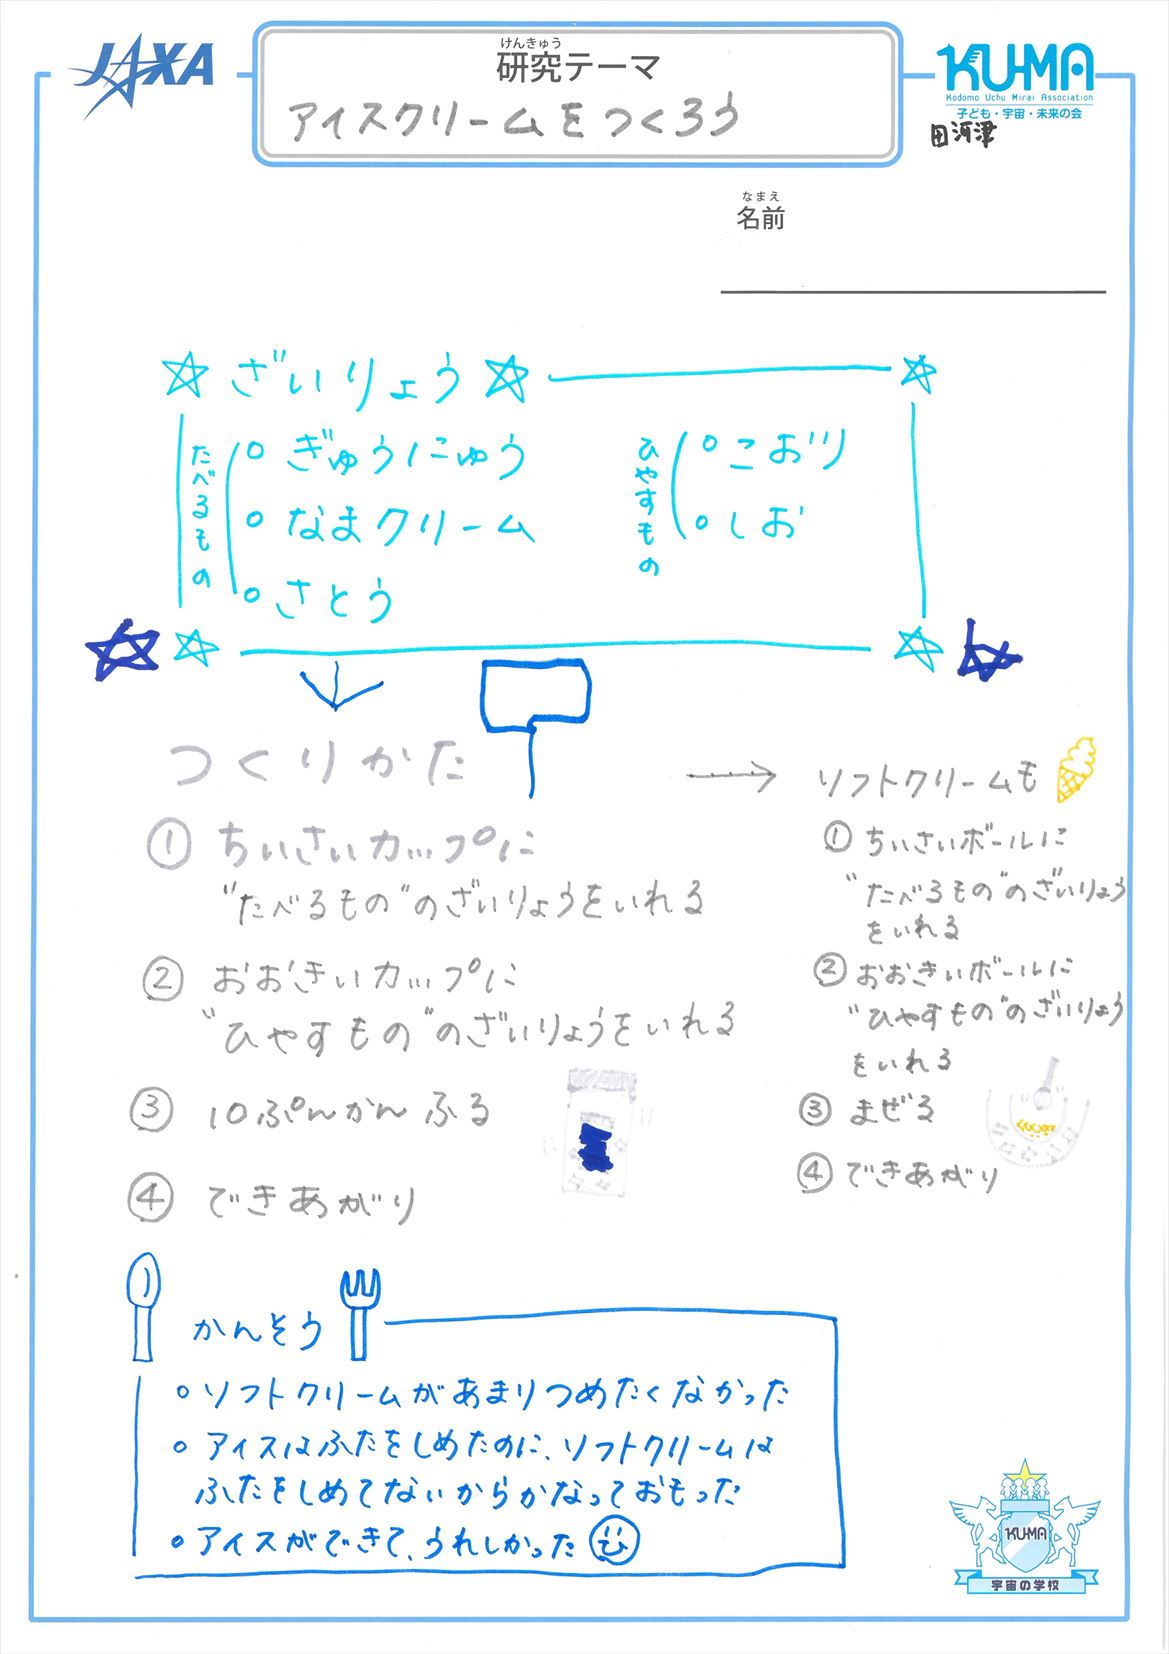 JAXA
けんきゅう
研究テーマ
アイスクリームをつくろう
KU-MA
Kodomo Uchu Mirai Association
子ども・宇宙・未来の会
田河津
なまえ
名前
ざいりょう
たべるもの
ぎゅうにゅう
なまクリーム
さとう
ひやすもの
こおり
しお
つくりかた
① ちいさいカップに
"たべるもの"のざいりょうをいれる
② おおきいカップに
"ひやすもの"のざいりょうをいれる
③ 10ぷんかんふる
④ できあがり
→ ソフトクリームも
① ちいさいボールに
"たべるもの"のざいりょう
をいれる
② おおきいボールに
"ひやすもの"のざいりょう
をいれる
③ まぜる
④ できあがり
かんそう
ソフトクリームがあまりつめたくなかった
アイスはふたをしめたのに、ソフトクリームは
ふたをしめてないからかなっておもった
アイスができて、うれしかった
KU-MA
宇宙の学校